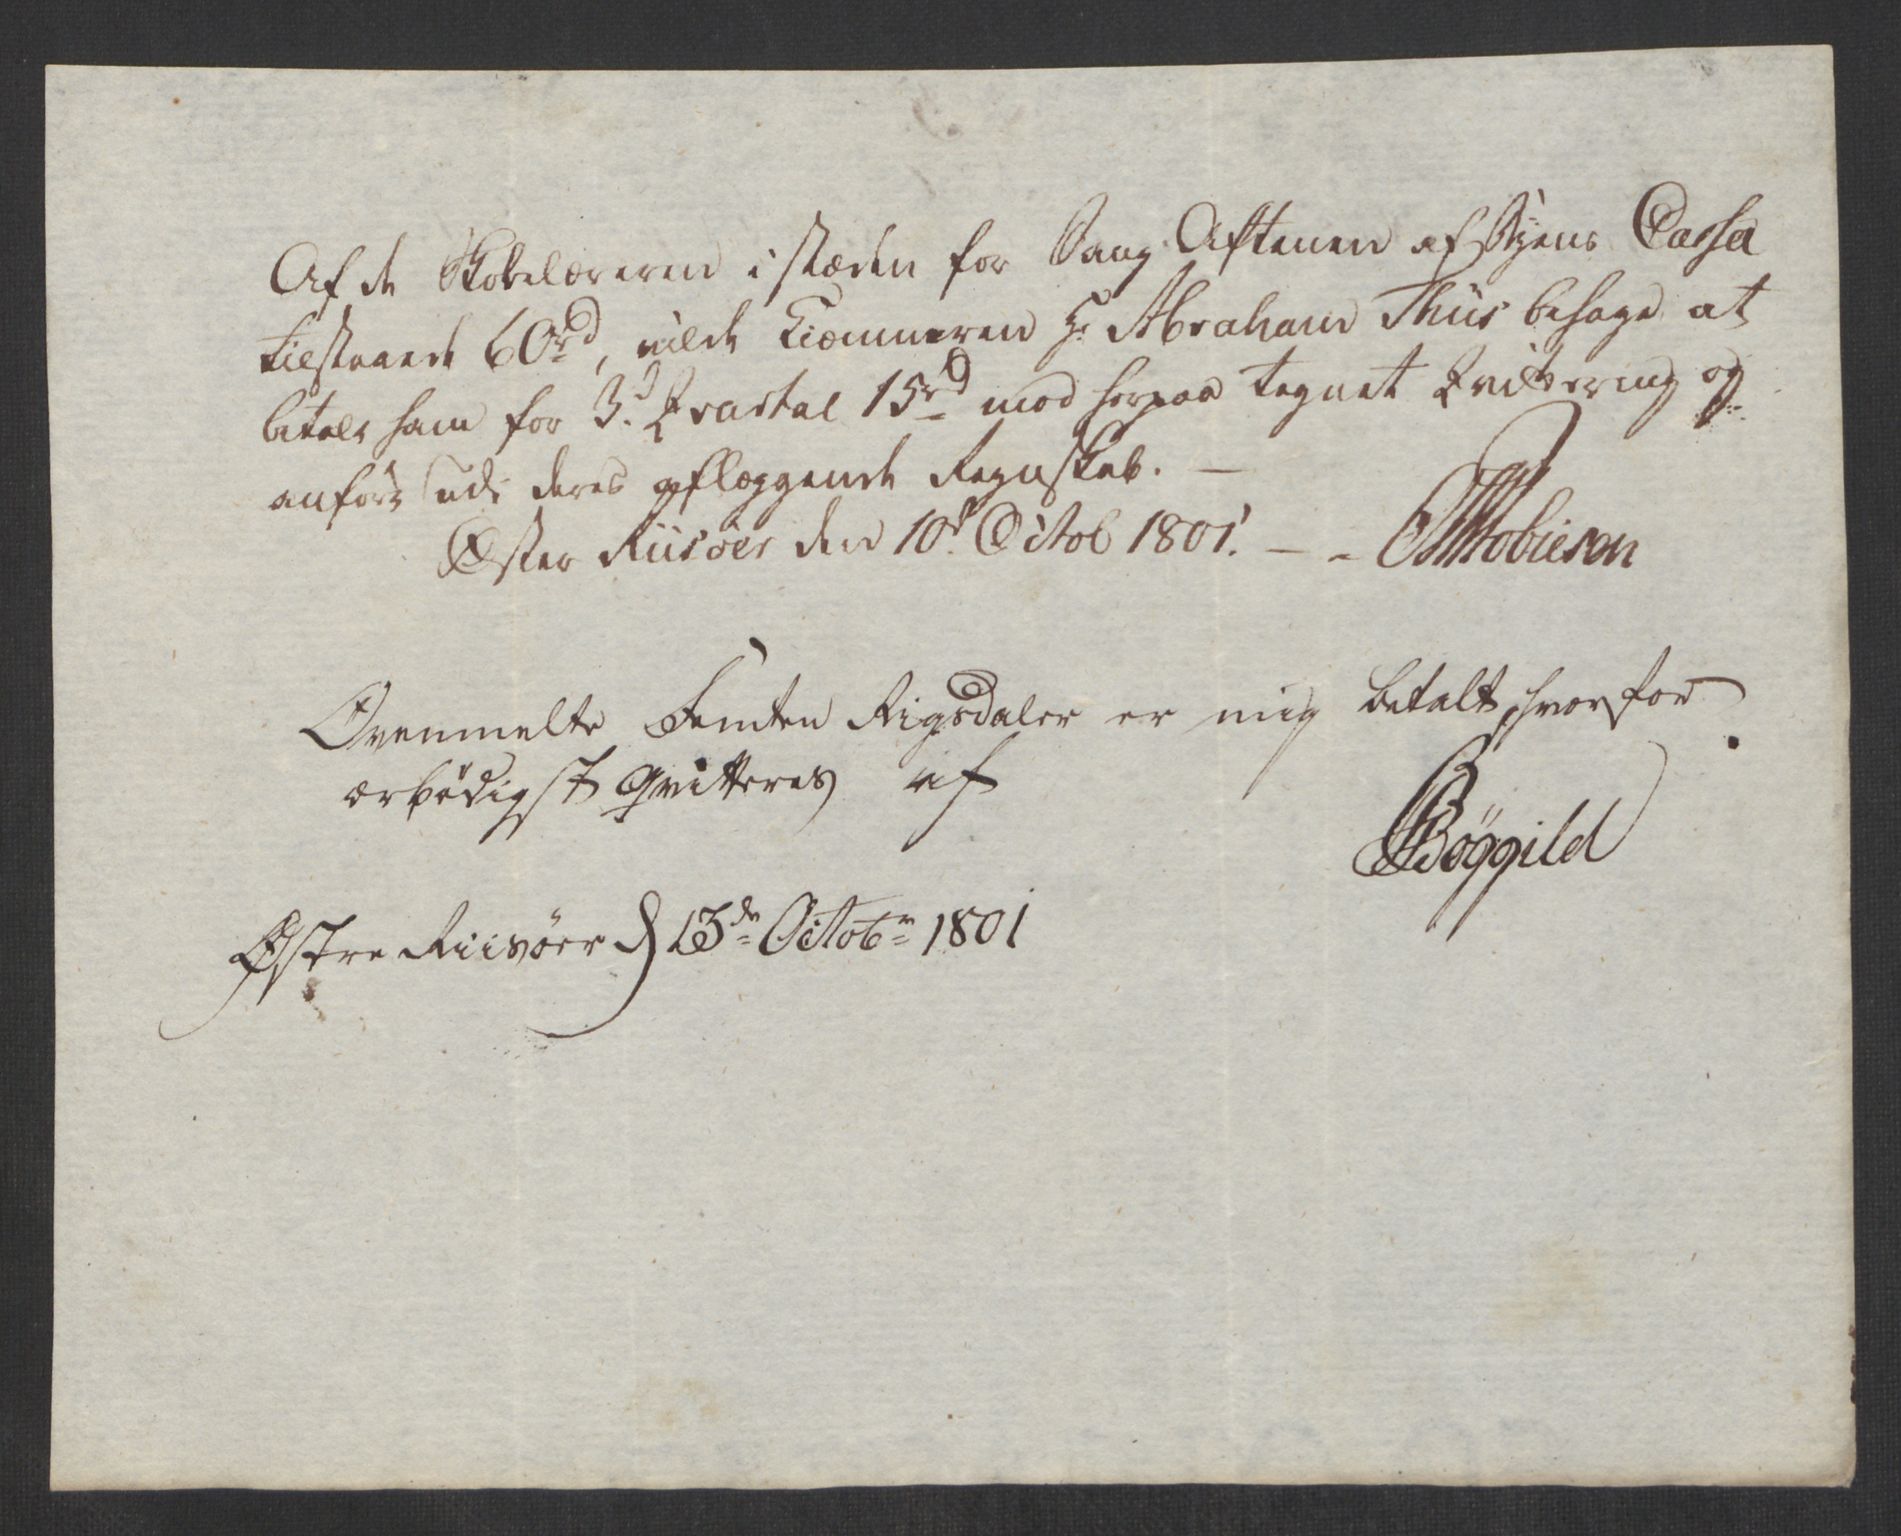 Af de Skolelæreren i stæden for Sang Aftenen af Byens Cassa
tilstaaede 60rd, vilde Kiæmneren Hr. Abraham Thiis behage at
betale ham for 3d. Qvartal 15rd mod herpaa tegnet Qvittering og
anføre udi deres aflæggende Regnskab. —
Øster Riisøer den 10de Octob 1801. — - Tobiesen
Ovenmelte Femten Rigsdaler er mig betalt, hvorfor
ærbødigst qvitteres af
Bøggild
Østre Riisøer d 13de Octobr 1801